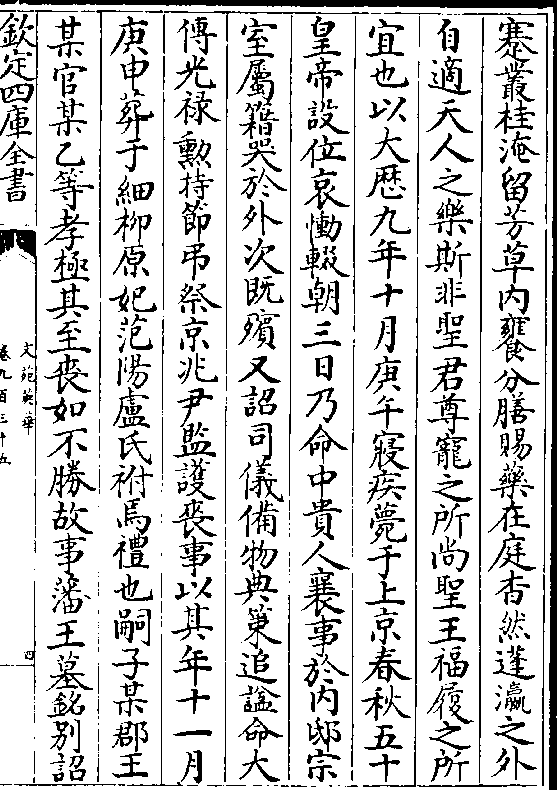 搴叢桂淹留芳草内饔分膳賜藥在庭杳然蓬瀛之外
自適天人之樂斯非聖君尊寵之所尚聖王福履之所
宜也以大厯九年十月庚午寢疾薨于上京春秋五十
皇帝設位哀慟輟朝三日乃命中貴人襄事於内邸宗
室屬籍哭於外次既殯又詔司儀備物典策追諡命大
傅光祿勲持節弔祭京兆尹監護喪事以其年十一月
庚申葬于細栁原妃范陽盧氏祔焉禮也嗣子某郡王
某官某乙等孝極其至喪如不勝故事藩王墓銘別詔
欽定四庫全書
文苑英華
卷九百三十五
四